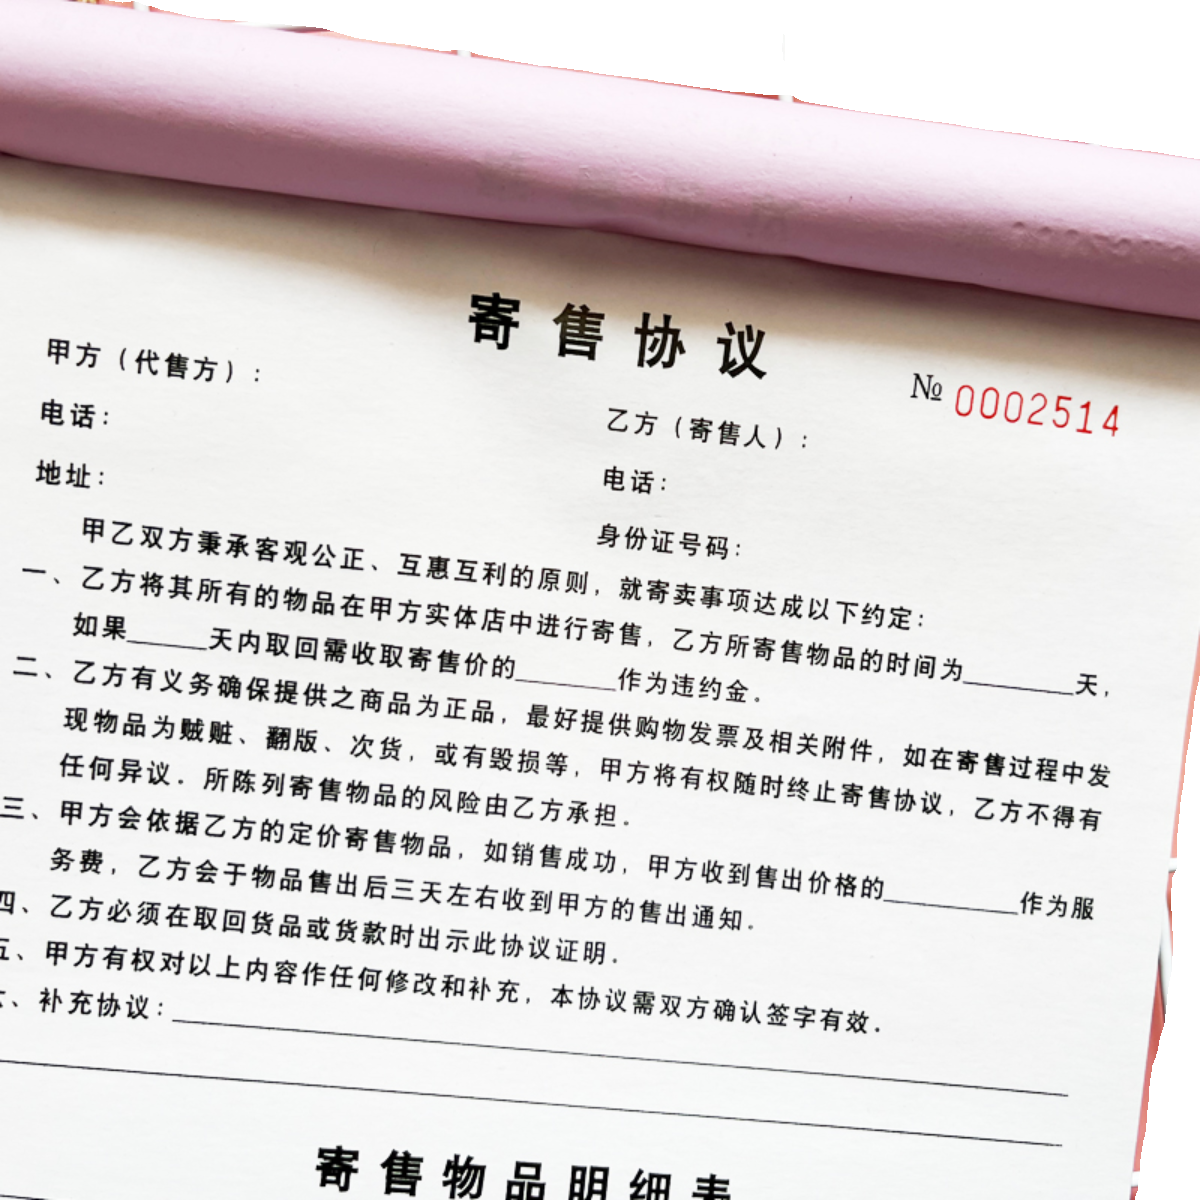 寄售协议
№ 0002514
甲方（代售方）:
乙方（寄售人）:
电话:
电话:
地址:
身份证号码:
甲乙双方秉承客观公正、互惠互利的原则，就寄卖事项达成以下约定:
一、乙方将其所有的物品在甲方实体店中进行寄售，乙方所寄售物品的时间为________天，
如果______天内取回需收取寄售价的________作为违约金.
二、乙方有义务确保提供之商品为正品，最好提供购物发票及相关附件，如在寄售过程中发
现物品为贼赃、翻版、次货，或有毁损等，甲方将有权随时终止寄售协议，乙方不得有
任何异议.所陈列寄售物品的风险由乙方承担.
三、甲方会依据乙方的定价寄售物品，如销售成功，甲方收到售出价格的__________作为服
务费，乙方会于物品售出后三天左右收到甲方的售出通知.
四、乙方必须在取回货品或货款时出示此协议证明.
五、甲方有权对以上内容作任何修改和补充，本协议需双方确认签字有效.
六、补充协议:
寄售物品明细表